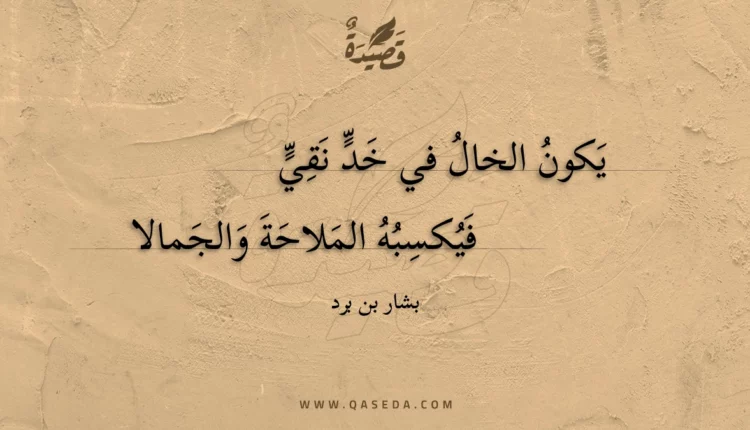 قَصِيْدَةٌ
يَكونُ الخالُ في خَدٍّ نَقِيٍّ
فَيُكسِبُهُ المَلاحَةَ وَالجَمالا
بشار بن برد
WWW.QASEDA.COM